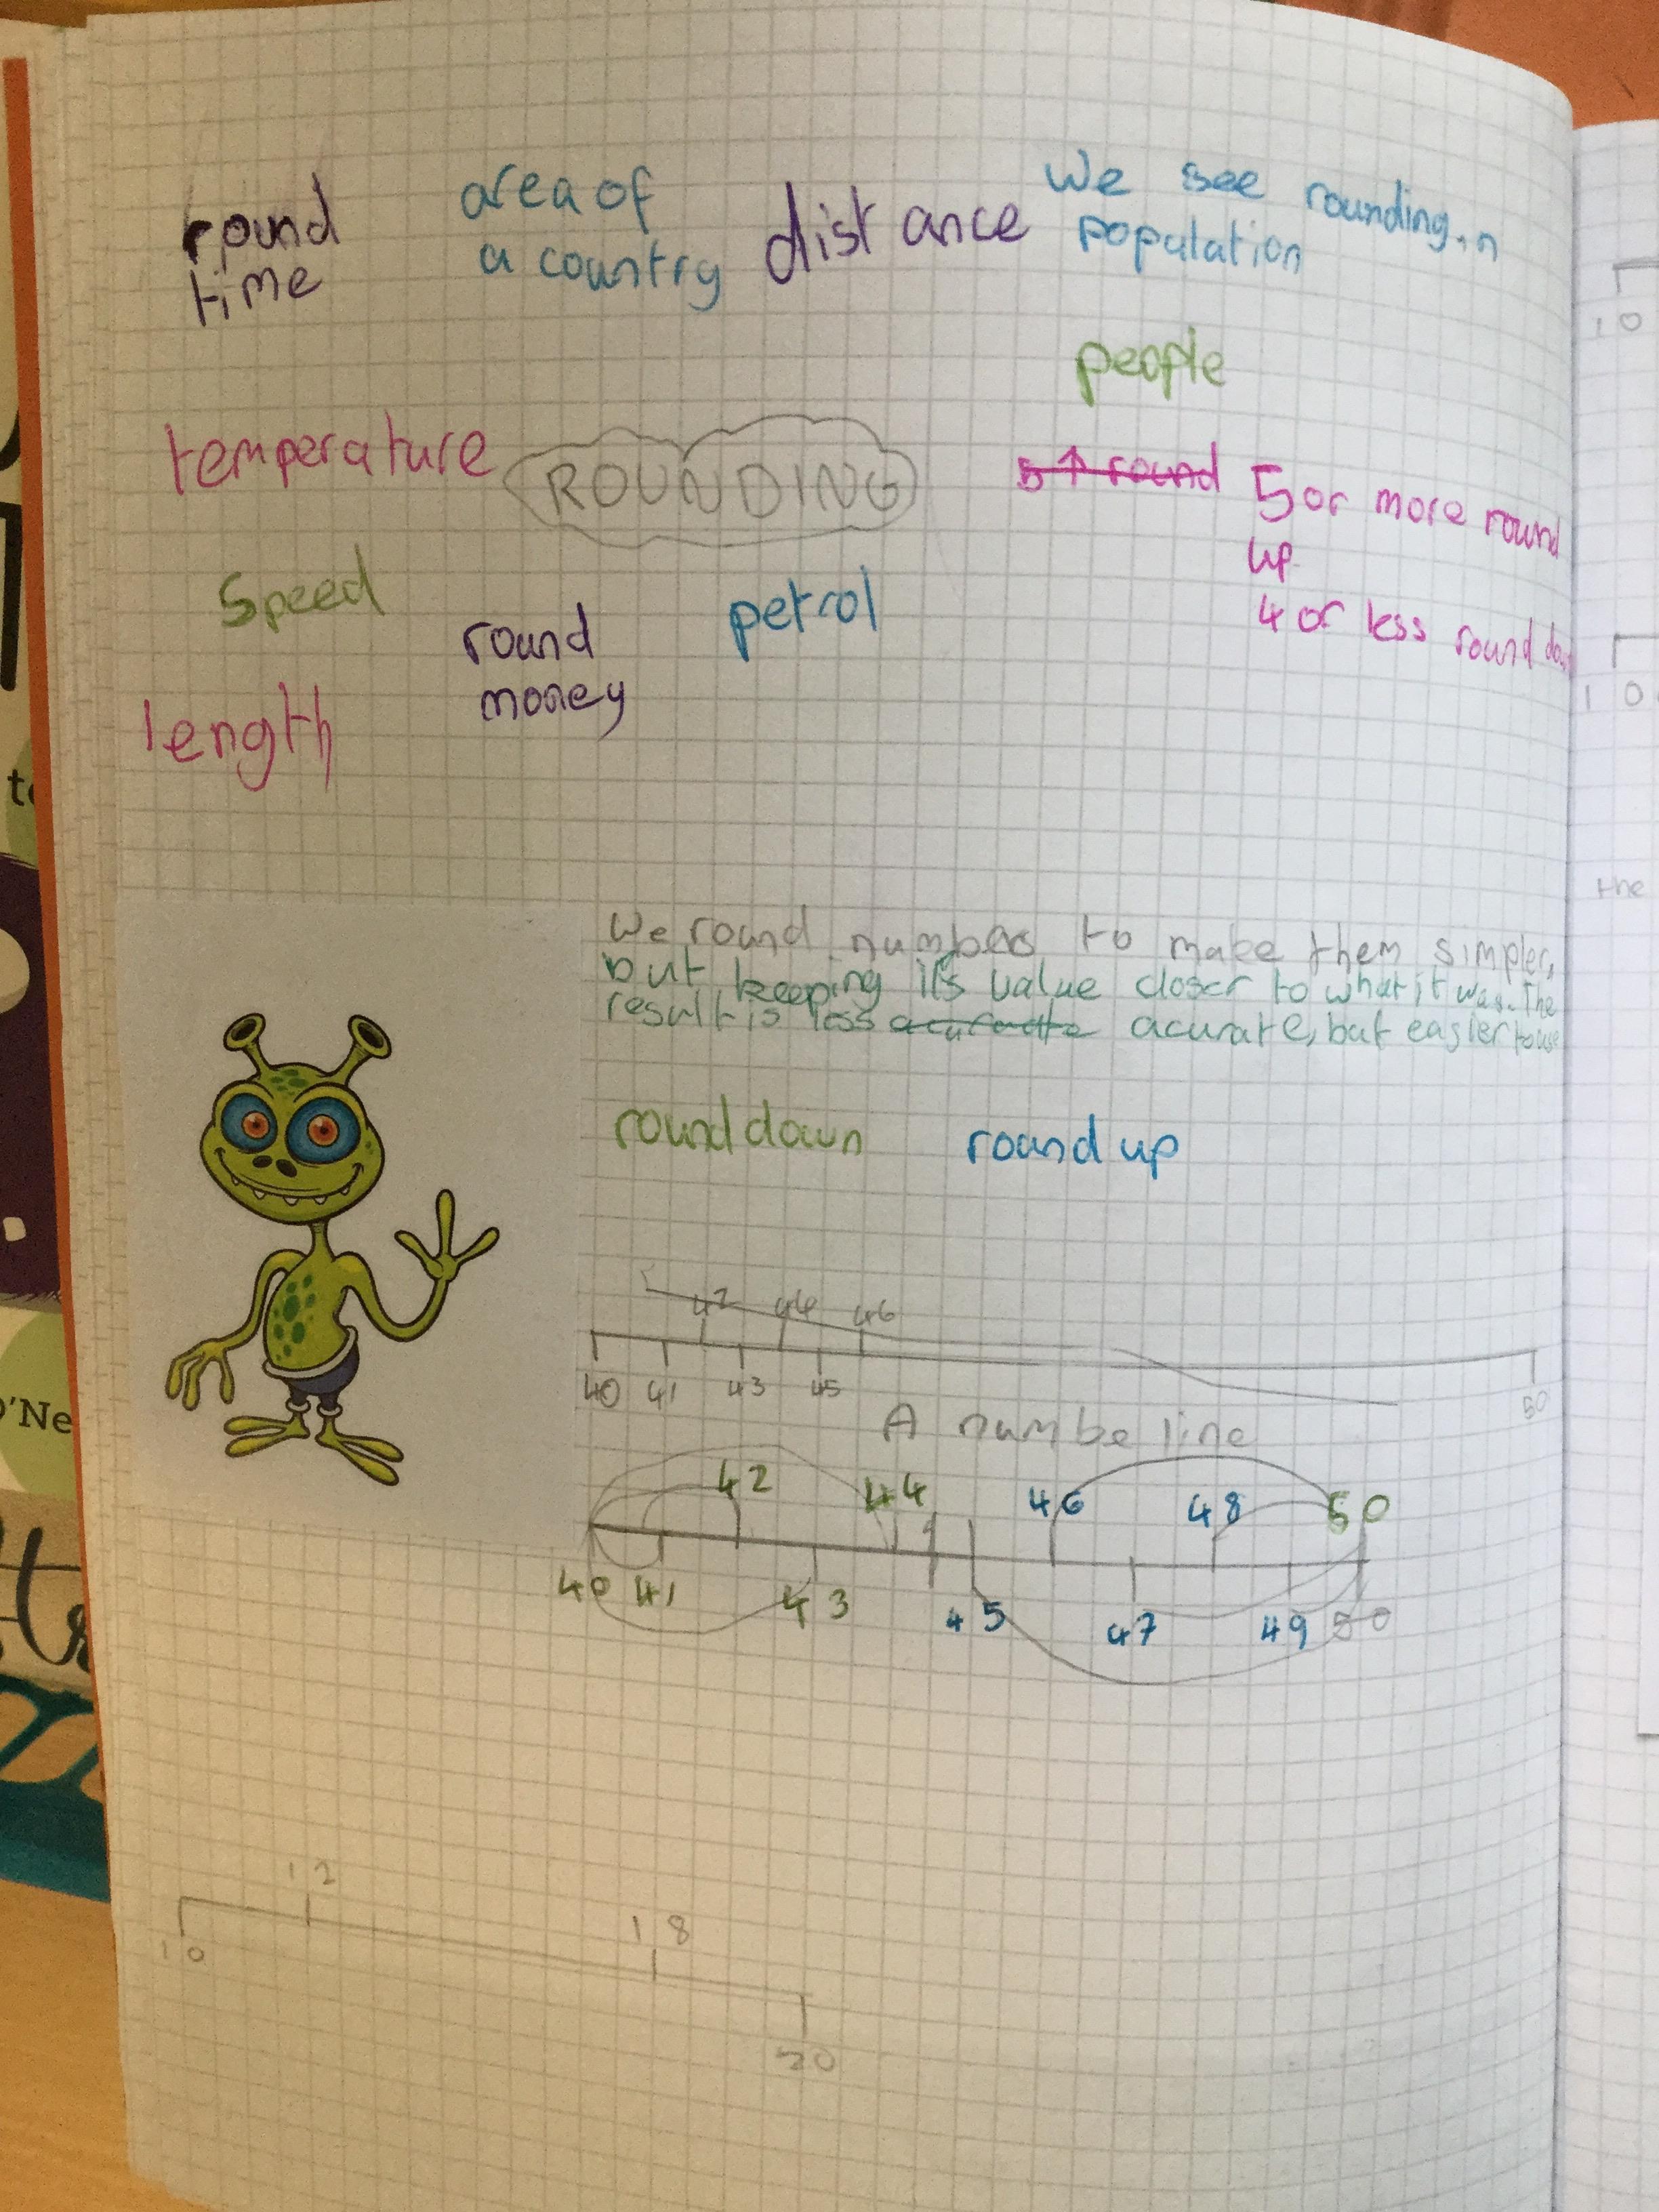 round
time
area of
a country
distance
We see rounding in
population
people
temperature
ROUNDING
5 ↑ round
5 or more round
up
4 or less round down
speed
round
money
petrol
length
We round numbers to make them simpler,
but keeping it's value closer to what it was. The
result is less acurate, but easier to use
round down
round up
42 44 46
40 41 43 45 50
A numbe line
42 44 46 48 50
40 41 43 45 47 49 50
12
18
10
20
10
10
the
O'Ne